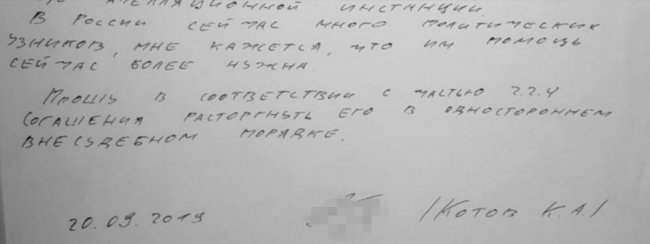 АПЕЛЛЯЦИОННОЙ ИНСТАНЦИИ.
В РОССИИ СЕЙЧАС МНОГО ПОЛИТИЧЕСКИХ
УЗНИКОВ, МНЕ КАЖЕТСЯ, ЧТО ИМ ПОМОЩЬ
СЕЙЧАС БОЛЕЕ НУЖНА.
ПРОШУ В СООТВЕТСТВИИ С ЧАСТЬЮ 2.2.4
СОГЛАШЕНИЯ РАСТОРГНУТЬ ЕГО В ОДНОСТОРОННЕМ
ВНЕСУДЕБНОМ ПОРЯДКЕ.
20.09.2019 /КОТОВ К.А/